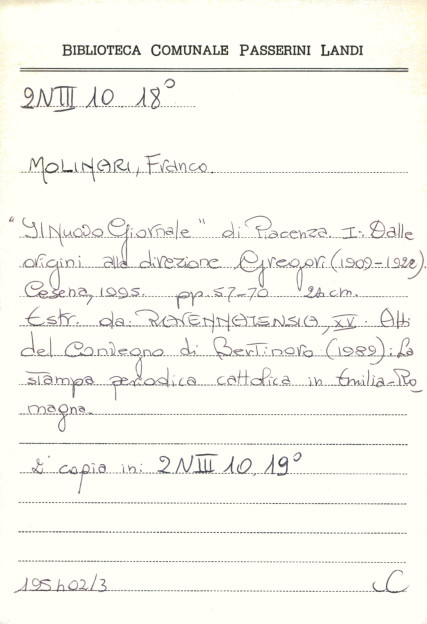 BIBLIOTECA COMUNALE PASSERINI LANDI
2N III 10. 18°
MOLINARI, Franco.
"Il Nuovo Giornale" di Piacenza. I: Dalle
origini alla direzione Gregori (1909-1922).
Cesena, 1995. pp. 57-70 24 cm.
Estr. da: RAVENNATENSIA, XV. Atti
del Convegno di Bertinoro (1989): La
stampa periodica cattolica in Emilia-Ro
magna.
2ª copia in: 2N III 10. 19°
195402/3
C